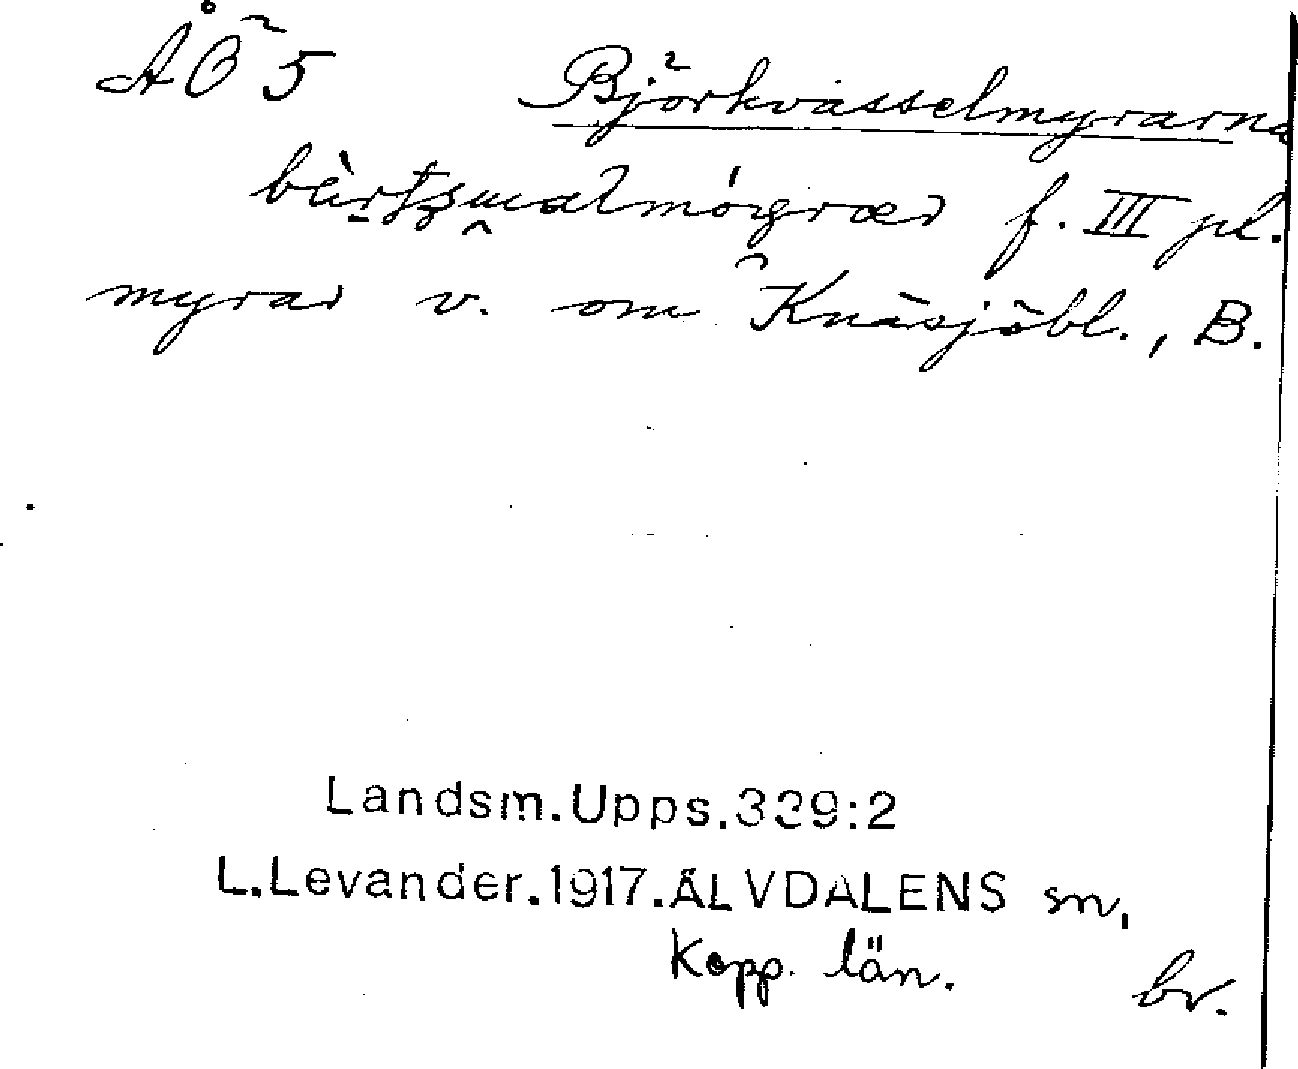 ÅÖ 5 Björkvasselmyrarna
f. III pl.
myrar v. om Knäsjöbl., B.
Landsm.Upps.339:2
L.Levander.1917.ÄLVDALENS sn,
Kopp. län.
br.